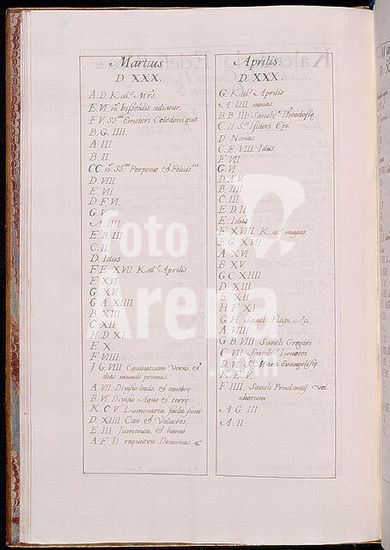 Martius.
D XXX.
A. D. Kal.
E. VI. bisextilis
F V. Emiteri Celedonique
B. G. IIII
A. III.
B. II.
CC. Perpetue & Felici
D. VIII
E. VII
D. F. VI
G. V
A. IIII
E. B. III
C. II
D. Idus
F E. XVII Kal. Aprilis
F XVI
G XV.
G A. XIIII
B. XIII
C XII
H. D XI
E X.
F VIIII
J G VIII Equinoctium Verni, &
dies mundi primus.
A VII Divisio lucis, et tenebre
B VI Divisio Aque et terre
K. C V Luminaria facta sunt
D. XIIII Cete et Volucres
E III Jumenta, & homo
A. F. II requievit Dominus. &
Aprilis
D. XXX.
G. Kal. Aprilis
A. IIII nonas
B. B. III Theodosie
C. II. Isidori Epi.
D. Nonas
C. E VIII Idus
F VII
G. VI
D. A. V
B. IIII
C. III
E. D. II
E. Idus
F. XVIII Kal. majas
F G. XVII
A XVI
B XV
G. C XIIII
D XIII
E XII
H F XI
G. Filipi Ap.
A VIIII
G B VIII Gregori
C VII Timotei
D Marci Evangeliste
K E V
F IIII Sancti Prudentij
A G. III
A. II.
foto
Arena
.com